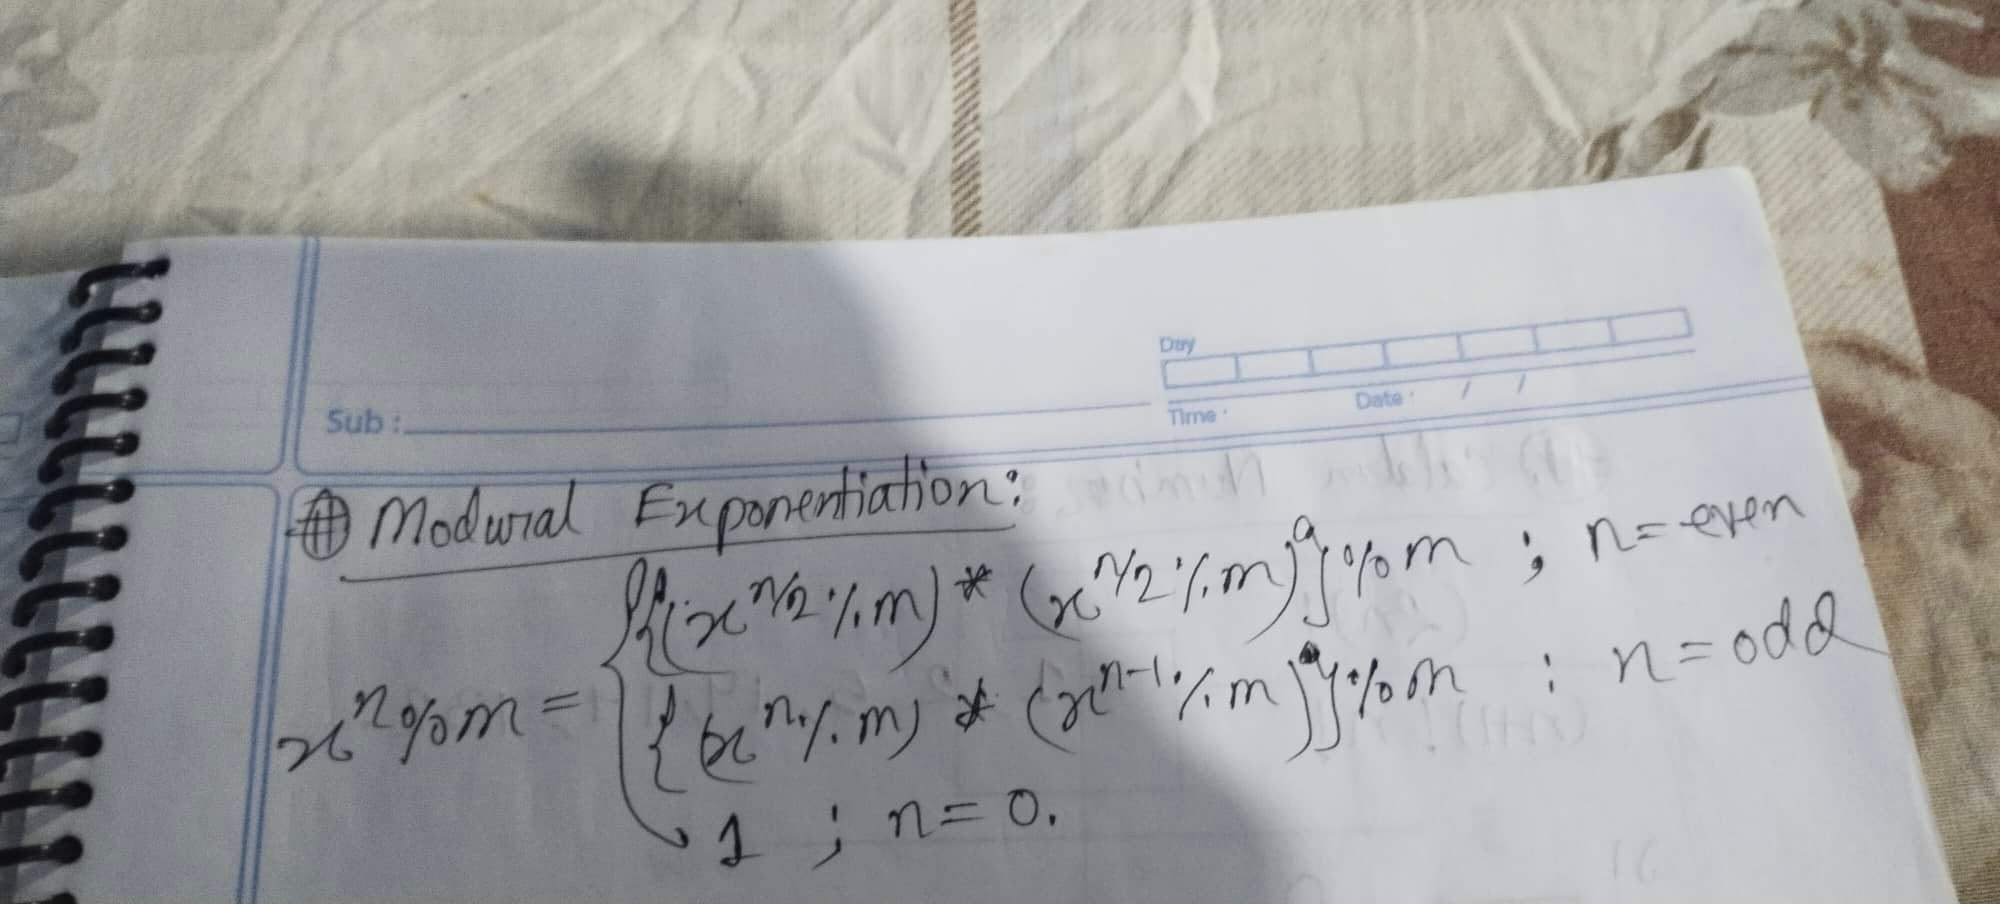 Day
Sub :
Time :
Date : / /
# Modural Exponentiation:
{(x^n/2 % m) * (x^n/2 % m)} % m ; n = even
x^n % m =
{(x^n % m) * (x^n-1 % m)} % m ; n = odd
1 ; n = 0.